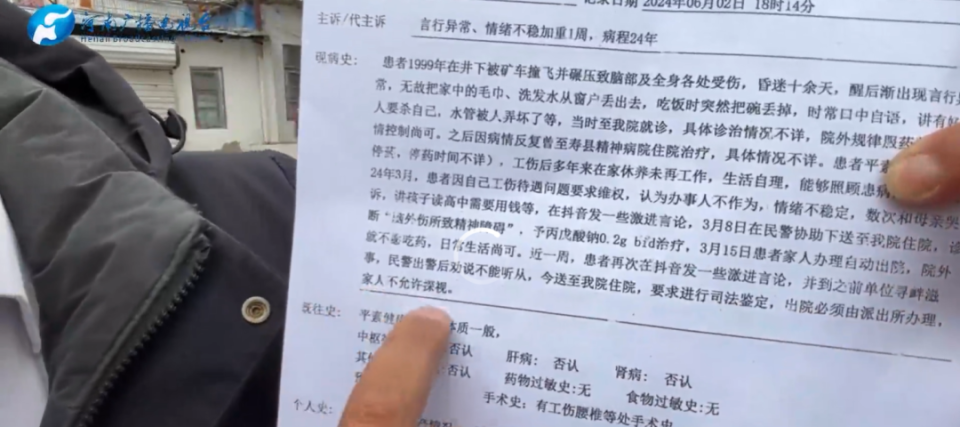 河南广播电视台
记录日期 2024年06月02日 18时14分
主诉/代主诉 言行异常、情绪不稳加重1周，病程24年
现病史： 患者1999年在井下被矿车撞飞并碾压致脑部及全身各处受伤，昏迷十余天，醒后渐出现言行
常，无故把家中的毛巾、洗发水从窗户丢出去，吃饭时突然把碗丢掉，时常口中自语，讲有
人要杀自己，水管被人弄坏了等，当时至我院就诊，具体诊治情况不详，院外规律服药
情控制尚可。之后因病情反复曾至寿县精神病院住院治疗，具体情况不详。患者平
停药时间不详），工伤后多年来在家休养未再工作，生活自理，能够照顾患病
24年3月，患者因自己工伤待遇问题要求维权，认为办事人不作为，情绪不稳定，数次和母亲
诉，讲孩子读高中需要用钱等，在抖音发一些激进言论，3月8日在民警协助下送至我院住院，
断"浅外伤所致精神障碍"，予丙戊酸钠0.2g bid治疗，3月15日患者家人办理自动出院，院外
就不吃药，日常生活尚可。近一周，患者再次在抖音发一些激进言论，并到之前单位寻衅滋
事，民警出警后劝说不能听从，今送至我院住院，要求进行司法鉴定，出院必须由派出所办理，
家人不允许探视。
既往史： 平素健 体质一般，
中枢 否认 肝病： 否认 肾病： 否认
其他 否认 药物过敏史:无 食物过敏史:无
手术史：有工伤腰椎等处手术史
个人史：